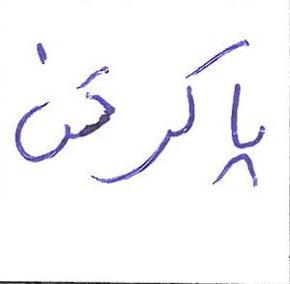 پاکرخن